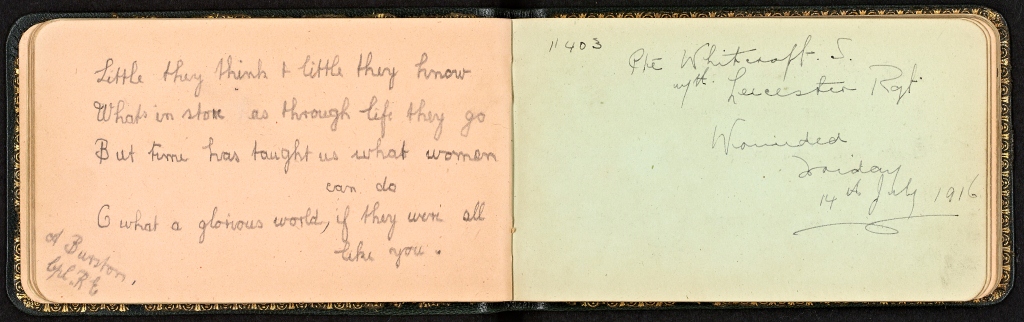 Little they think & little they know
Whats in store as through life they go
But time has taught us what women
can do
O what a glorious world, if they were all
like you.
A Burston,
Cpl. R E
11403
Pte Whitcroft. S.
7th Leicester Rgt
Wounded
Friday
14th July 1916